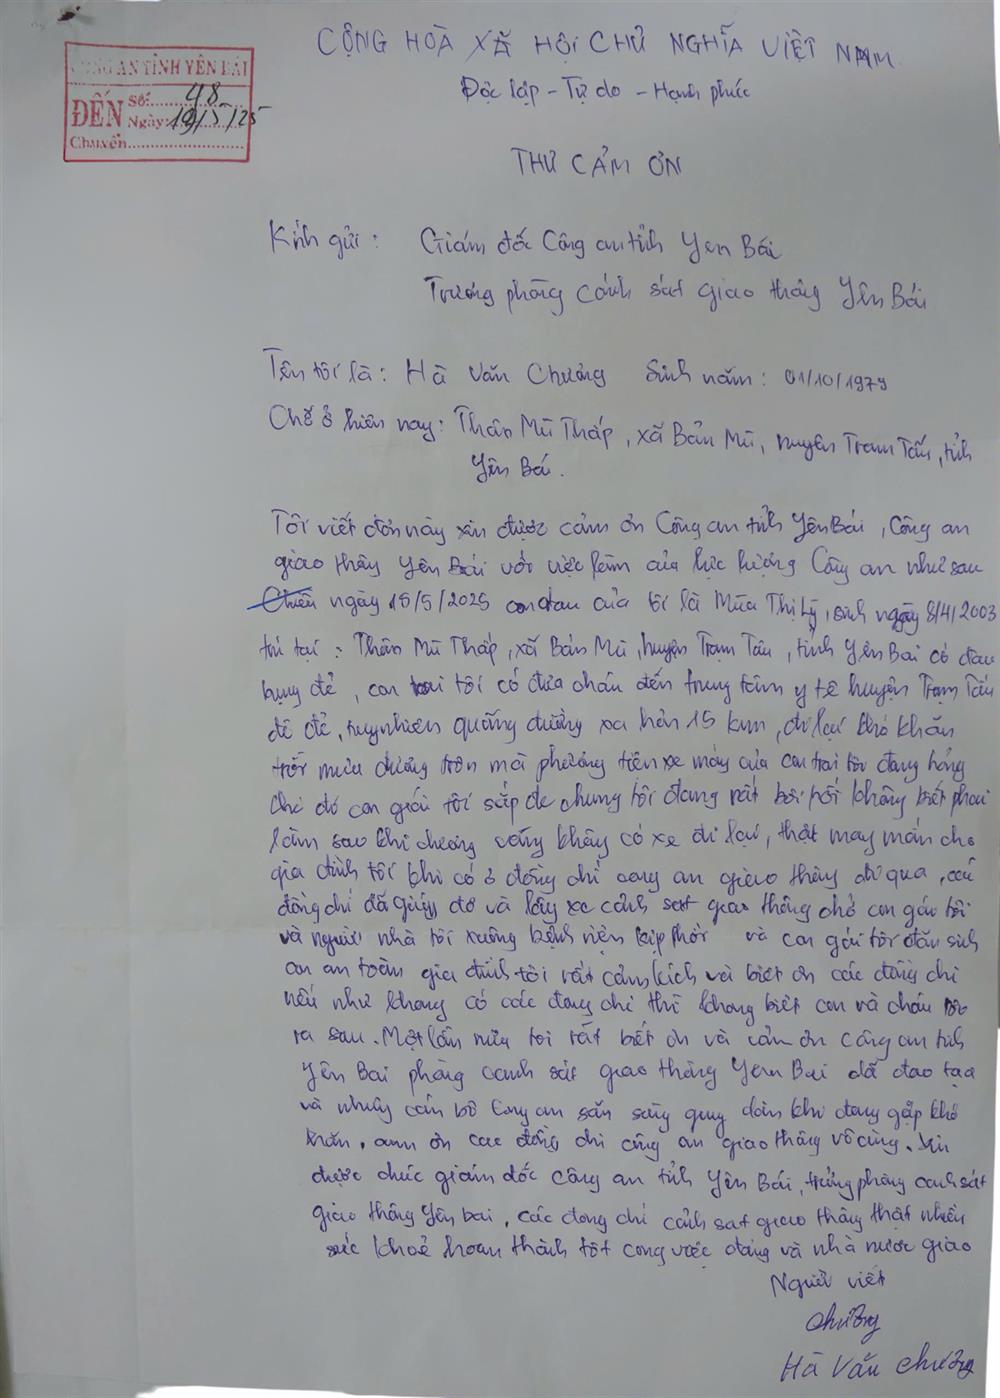 CÔNG AN TỈNH YÊN BÁI
ĐẾN
Số: 48
Ngày: 19/5/25
Chuyển
CỘNG HOÀ XÃ HỘI CHỦ NGHĨA VIỆT NAM
Độc lập - Tự do - Hạnh phúc
THƯ CẢM ƠN
Kính gửi: Giám đốc Công an tỉnh Yen Bái
Trưởng phòng cảnh sát giao thông Yên Bái
Tên tôi là: Hà Văn Chương Sinh năm: 01/10/1979
Chỗ ở hiên nay: Thôn Mù Tháp, xã Bản Mù, huyện Tram Tấu, tỉnh
Yên Bái.
Tôi viết đơn này xin được cảm ơn Công an tỉnh Yên Bái, Công an
giao thông Yên Bái với việc làm của lực lượng Công an như sau
Chiều ngày 15/5/2025 con dau của tôi là Mùa Thị Lý, sinh ngày 8/4/2003
trú tại: Thôn Mù Tháp, xã Bản Mù, huyện Trạm Tấu, tỉnh Yên Bai có đau
bụng đẻ, con trai tôi có đưa cháu đến trung tâm y tế huyện Trạm Tấu
đê đẻ, tuy nhiên quãng đường xa hơn 15 km, đi lại khó khăn
trời mưa đường trơn mà phương tiên xe máy của con trai tôi đang hỏng
chi đó con gái tôi sắp đe chung tôi đang rất bôi rối không biết phai
làm sao khi đương vắng không có xe đi lại, thật may mắn cho
gia đình tôi khi có đồng chi cong an giao thông đi qua, các
đồng chí đã giúp đơ và lấy xe cảnh sat giao thông chở con gái tôi
và người nhà tôi xuống bệnh viện kịp thời và con gái tôi đẫ sinh
an toàn gia đình tôi rất cảm kích và biết ơn các đồng chi
nếu như khong có các đong chi thì khong biết con và cháu tôi
ra sau. Một lần nữa toi rất biết ơn và cảm ơn công an tỉnh
Yên Bai phòng canh sát giao thông Yen Bai đã đao tạo
và những cán bô Công an sẵn sàng giúp dân khi đang gặp khó
khăn. cam ơn cac đồng chi công an giao thông vô cùng. Xin
được chúc giám đốc công an tỉnh Yên Bái, trưởng phòng canh sát
giao thông Yên bai, các đong chi cảnh sat giao thông thật nhiều
sức khoẻ hoan thành tốt cong việc đảng và nhà nước giao
Người viết
Chương
Hà Văn Chương